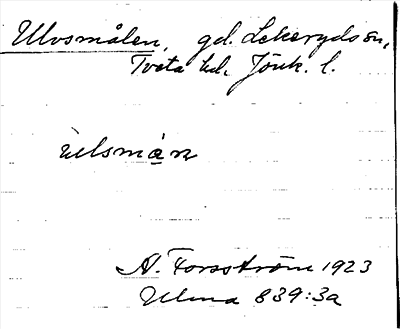 Ulvsmålen, gd. Lekeryds sn,
Tveta hd. Jönk. l.
ùlsmàn
A. Forsström 1923
Ulma 839:3a